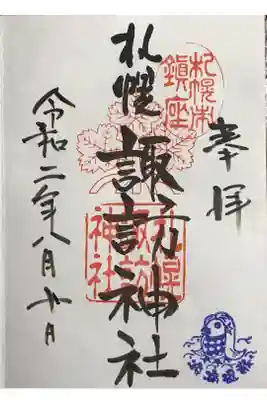 奉拝
札幌市
鎮座
札幌
諏訪神社
札幌
諏訪
神社
令和二年八月十日